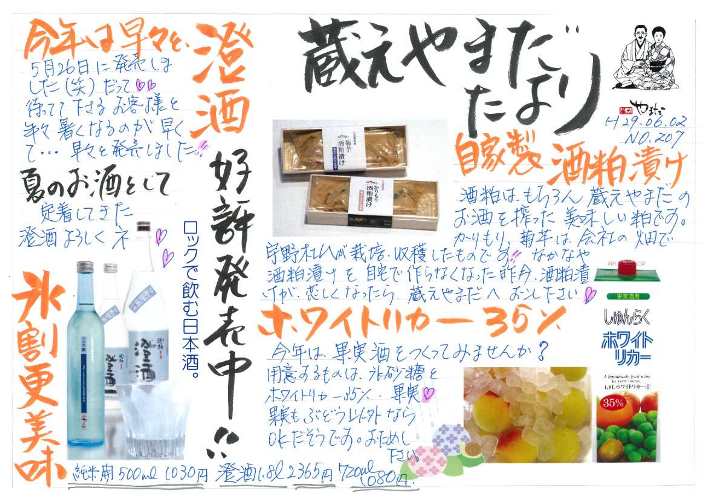 蔵元やまだ
たより
やまだ
H29.06.02
NO.207
今年は早々と、
澄酒
5月26日に発売しま
した(笑)だって
待ってて下さるお客様と
年々暑くなるのが早く
て…早々と発売しました!!
夏のお酒として
定着してきた
澄酒よろしくネ
好評発売中!!
ロックで飲む日本酒。
氷割更美味
純米酒500ml 1,030円 澄酒1.8l 2365円 720ml
1,080円
自家製 酒粕漬け
酒粕は、もちろん 蔵元やまだの
お酒を搾った 美味しい粕です。
かりもり、菊芋は 会社の畑で
宇野さんが栽培、収穫したものです!! なかなか
酒粕漬けを自宅で作らなくなった昨今、酒粕漬
けが、恋しくなったら 蔵元やまだへお越し下さい
酒粕漬け
酒粕漬け
ホワイトリカー35%
今年は、果実酒をつくってみませんか?
用意するものは、氷砂糖と
ホワイトリカー35%、果実
果実もぶどう以外なら
OKだそうです。お試し
下さい
果実酒用
しゅんらく
ホワイト
リカー
35%